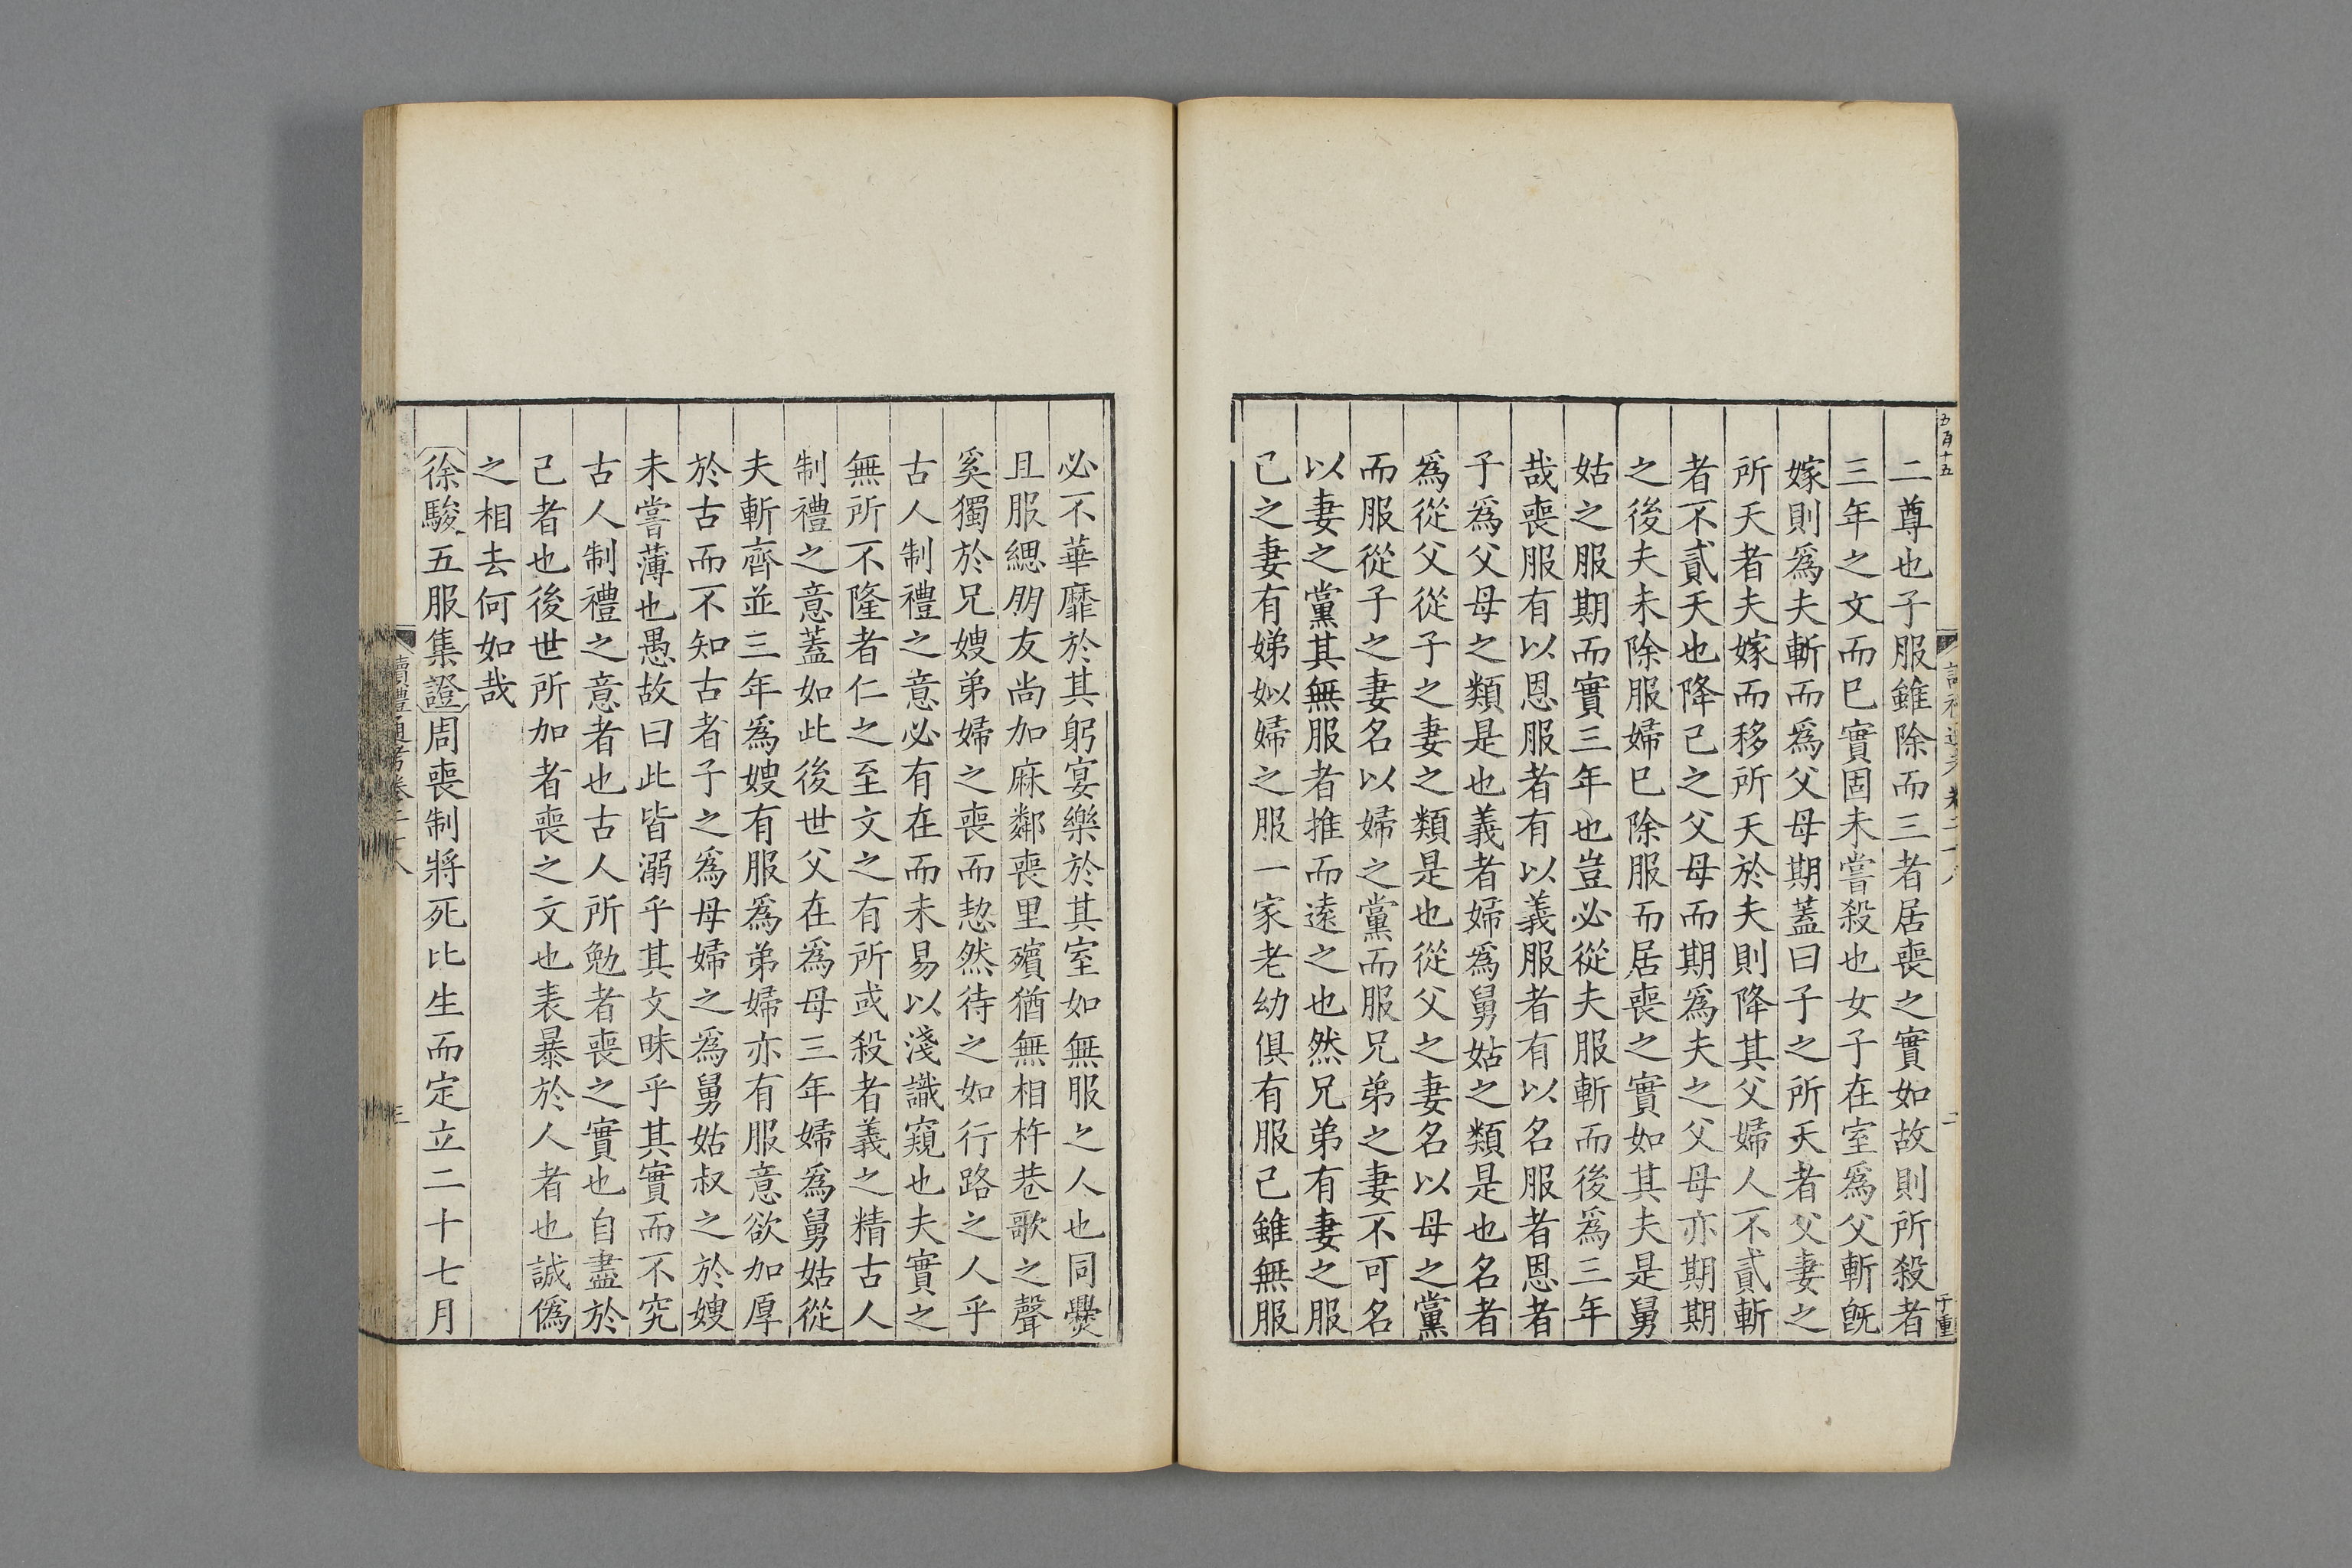 二尊也子服雖除而三者居喪之實如故則所殺者
三年之文而巳實固未嘗殺也女子在室爲父斬旣
嫁則爲夫斬而爲父母期蓋曰子之所天者父妻之
所天者夫嫁而移所天於夫則降其父婦人不貳斬
者不貳天也降己之父母而期爲夫之父母亦期期
之後夫未除服婦巳除服而居喪之實如其夫是舅
姑之服期而實三年也豈必從夫服斬而後爲三年
哉喪服有以恩服者有以義服者有以名服者恩者
子爲父母之類是也義者婦爲舅姑之類是也名者
爲從父從子之妻之類是也從父之妻名以母之黨
而服從子之妻名以婦之黨而服兄弟之妻不可名
以妻之黨其無服者推而遠之也然兄弟有妻之服
己之妻有娣姒婦之服一家老幼俱有服己雖無服
必不華靡於其躬宴樂於其室如無服之人也同爨
且服緦朋友尚加麻鄰喪里殯猶無相杵巷歌之聲
奚獨於兄嫂弟婦之喪而恝然待之如行路之人乎
古人制禮之意必有在而未易以淺識窺也夫實之
無所不隆者仁之至文之有所或殺者義之精古人
制禮之意蓋如此後世父在爲母三年婦爲舅姑從
夫斬齊並三年爲嫂有服爲弟婦亦有服意欲加厚
於古而不知古者子之爲母婦之爲舅姑叔之於嫂
未嘗薄也愚故曰此皆溺乎其文昧乎其實而不究
古人制禮之意者也古人所勉者喪之實也自盡於
己者也後世所加者喪之文也表暴於人者也誠僞
之相去何如哉
徐駿五服集證周喪制將死比生而定立二十七月
讀禮通考卷二十八